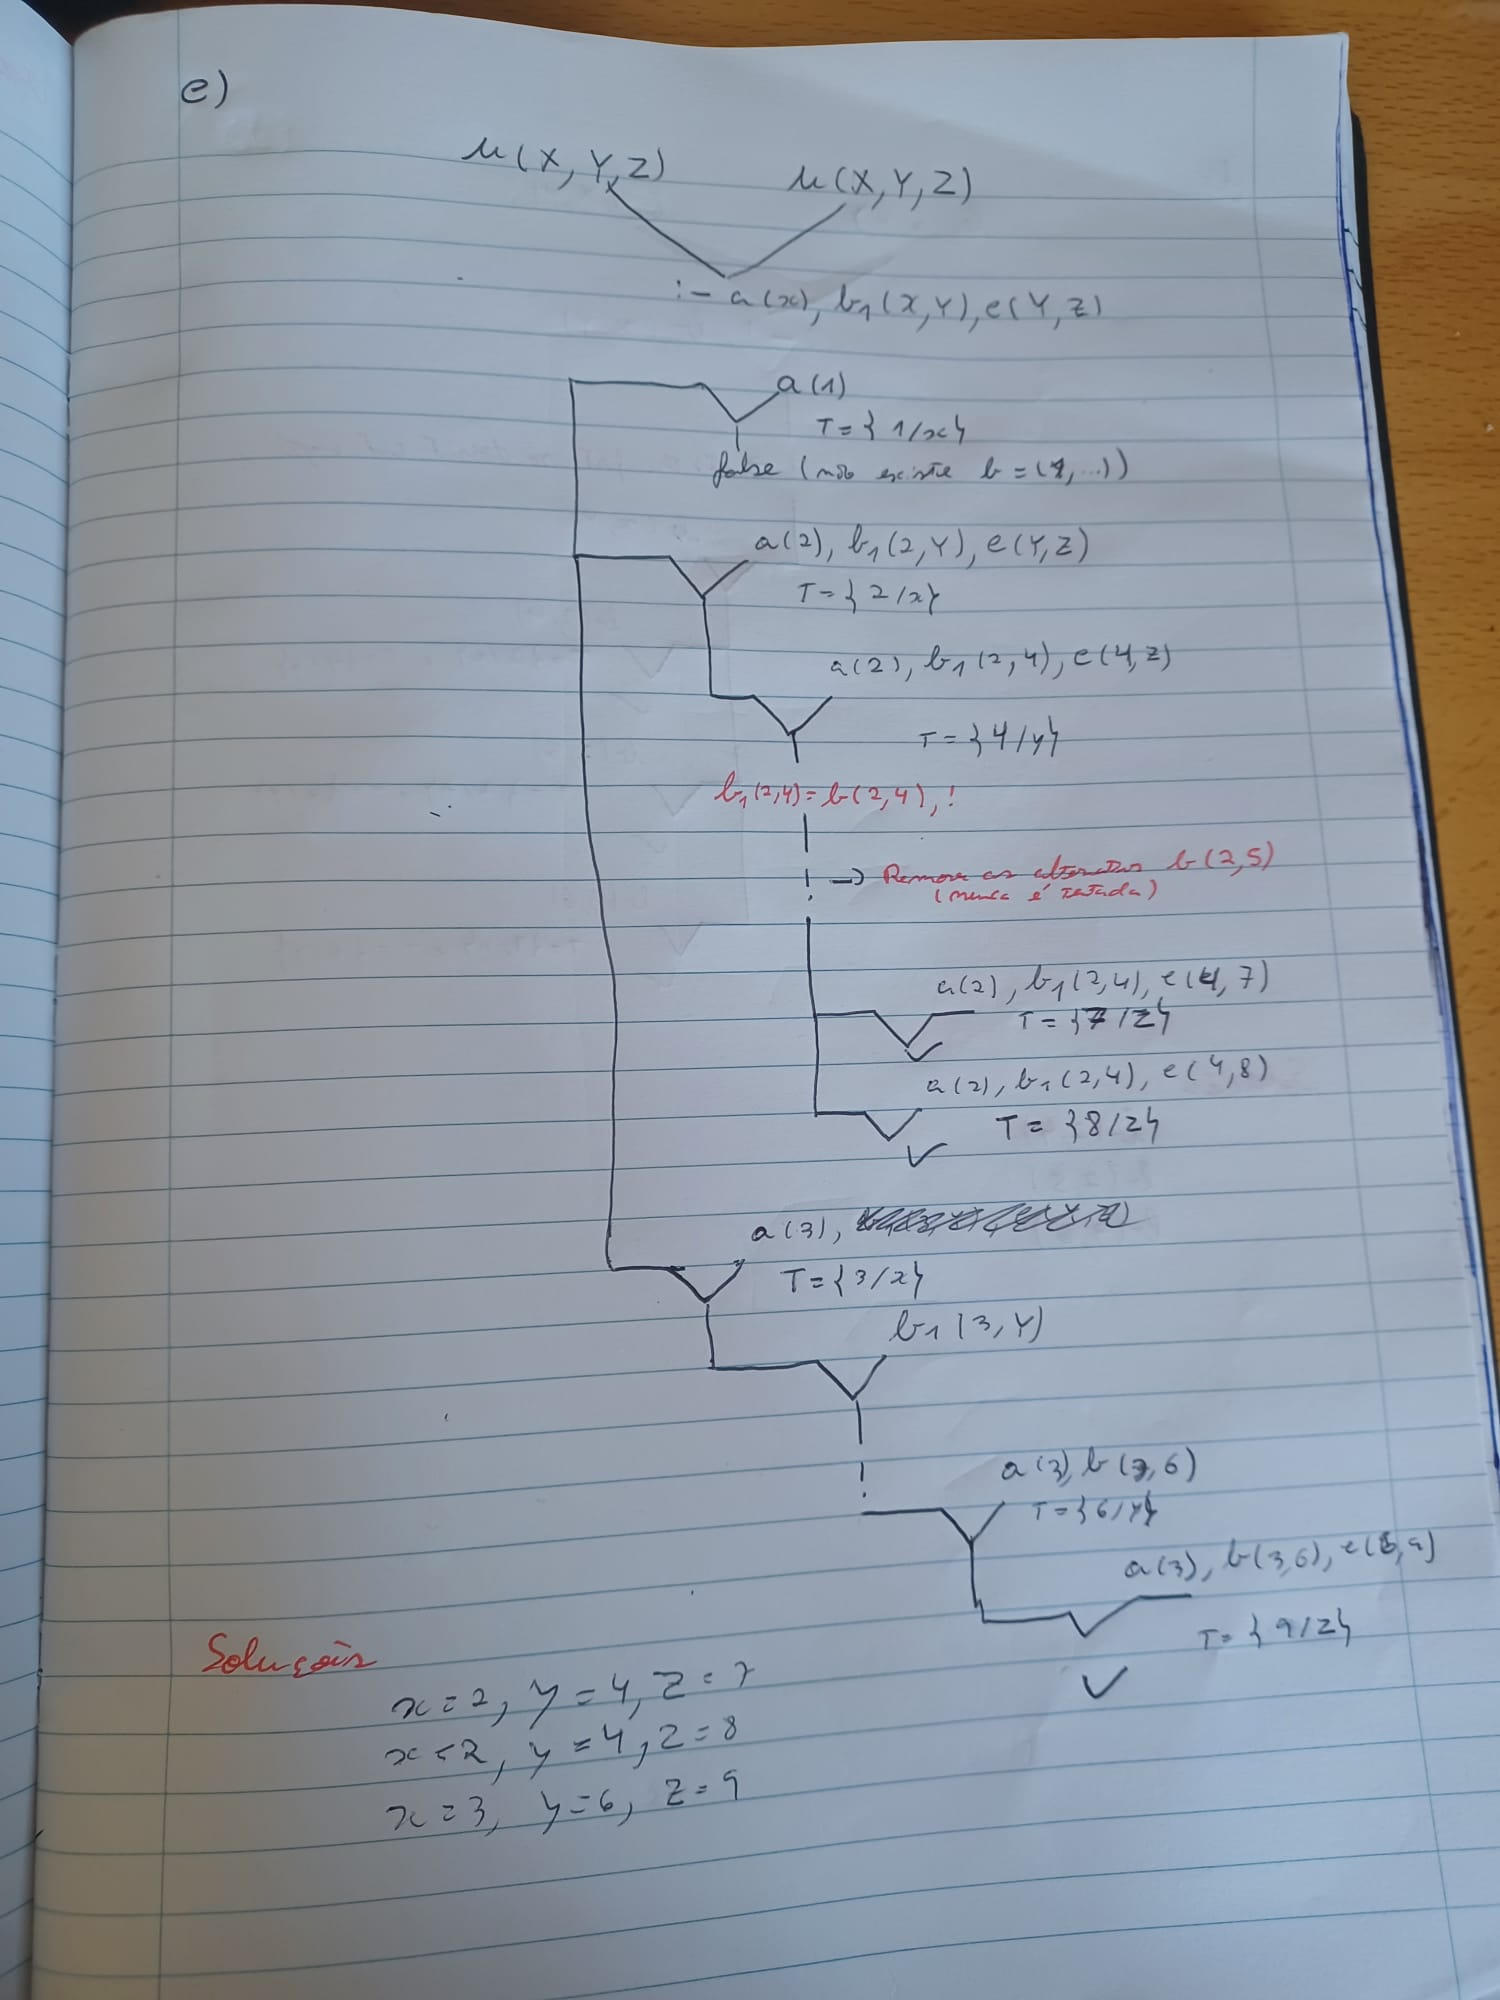 e)
u(X, Y, Z) u(X, Y, Z)
:- a(x), b1(X, Y), e(Y, Z)
a(1)
T = { 1/x}
false (não existe b = (1, ...))
a(2), b1(2, Y), e(Y, Z)
T = { 2/x}
a(2), b1(2, 4), e(4, z)
T = {4/y}
b1(2,4) = b(2,4), !
→ Remove as b(2,5)
(nunca é testada)
a(2), b1(2,4), e(4, 7)
T = {7/Z}
a(2), b1(2,4), e(4,8)
T = {8/Z}
a(3),
T = {3/x}
b1(3, Y)
!
a(3) b(3,6)
T = {6/Y}
a(3), b(3,6), e(6,9)
T = {9/Z}
Soluções
x = 2, y = 4, Z = 7
x = 2, y = 4, Z = 8
x = 3, y = 6, Z = 9